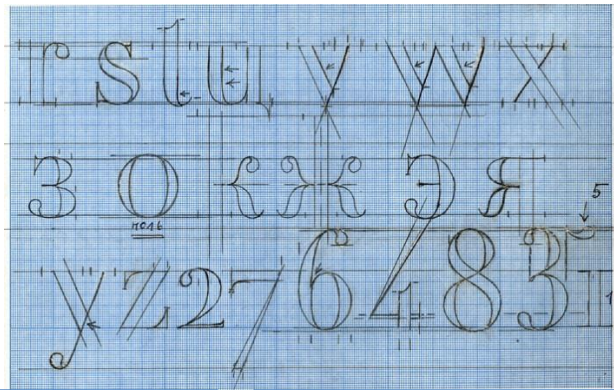 r s t u v w x
З О К Ж Э Я
ноль
5
y z 2 7 6 4 8 3